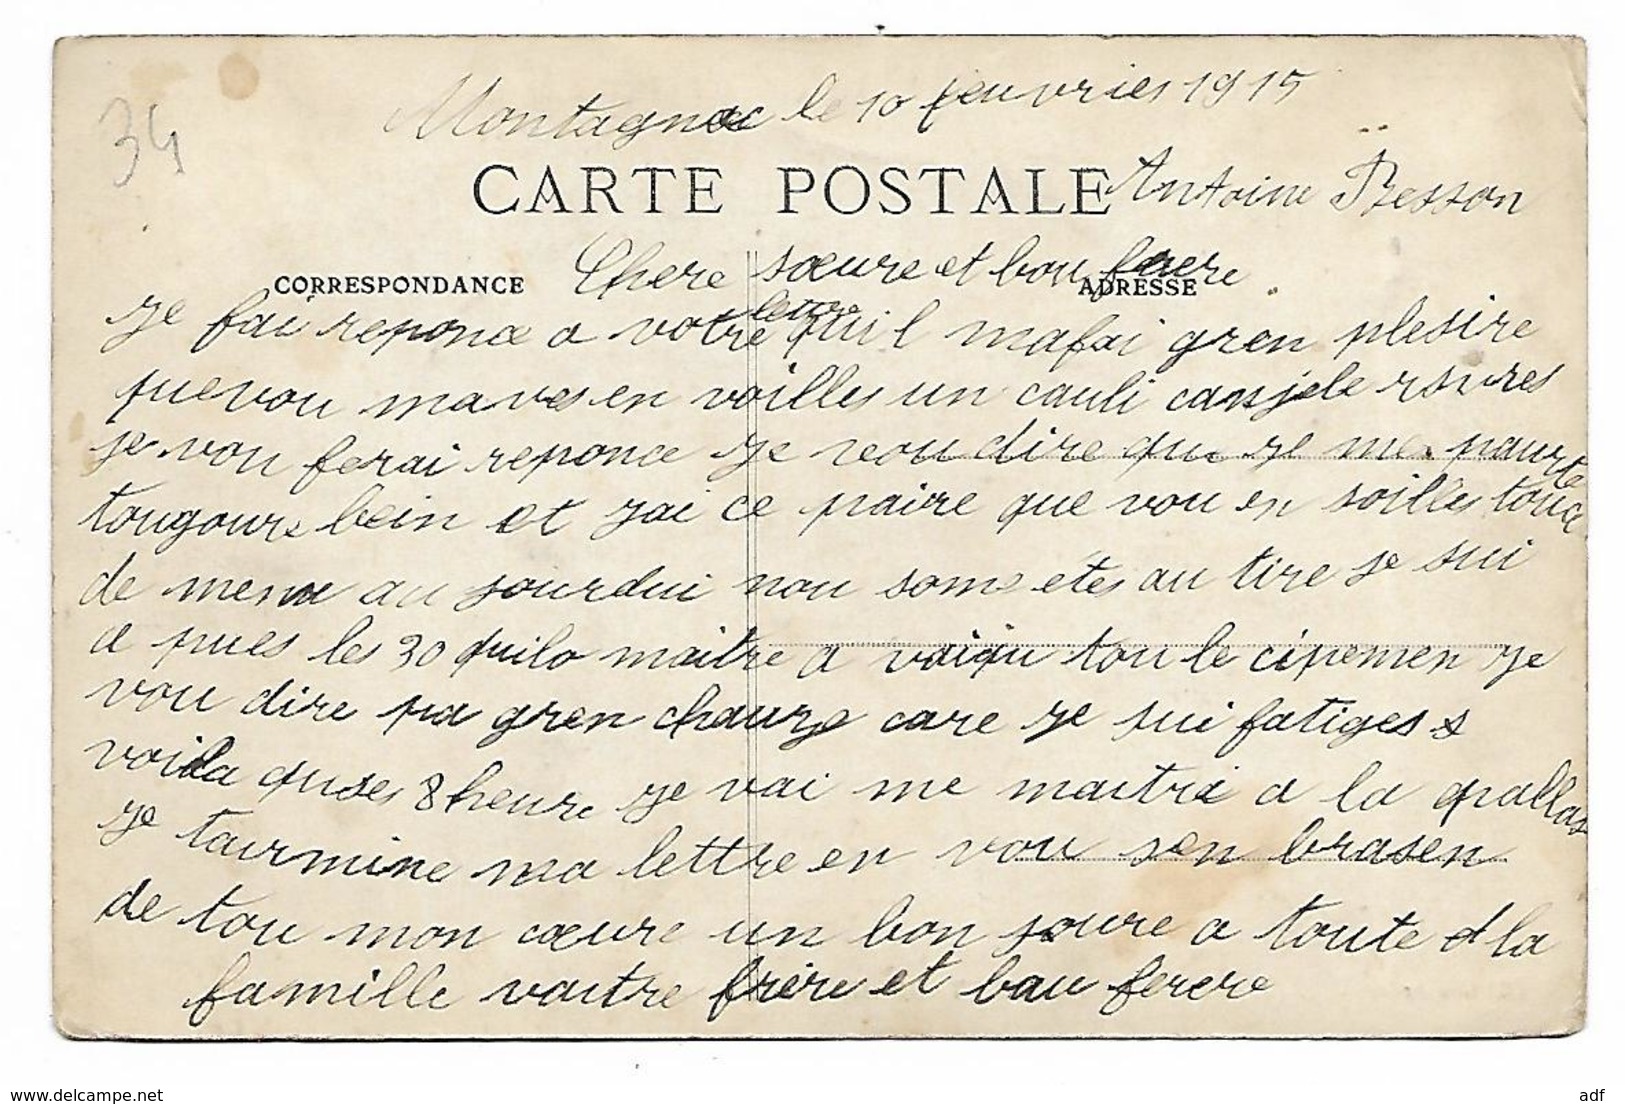 34
Montagnac le 10 feuvries 1915
CARTE POSTALE
Antoine Besson
CORRESPONDANCE
Chere sœure et bon frere
ADRESSE
je fai reponce a votre lettre quil mafai gren plesire
que vou maves en voilles un cauli can je le
je vou ferai reponce je veou dire que je me paurte
tougours bein et jai ce paire que vou en soilles touce
de meme au jourdui nou some étes au tire je sui
a pues les 30 quilo maitre a vaiqu tou le cipemen je
vou dire pa gren chauze care je sui fatiges
voila quses 8 heure je vai me maitre a la pallas
je taurmine ma lettre en vou sen brasen
de tou mon cœure un bon soure a toute la
famille vautre frère et bau ferere
adf
delcampe.net